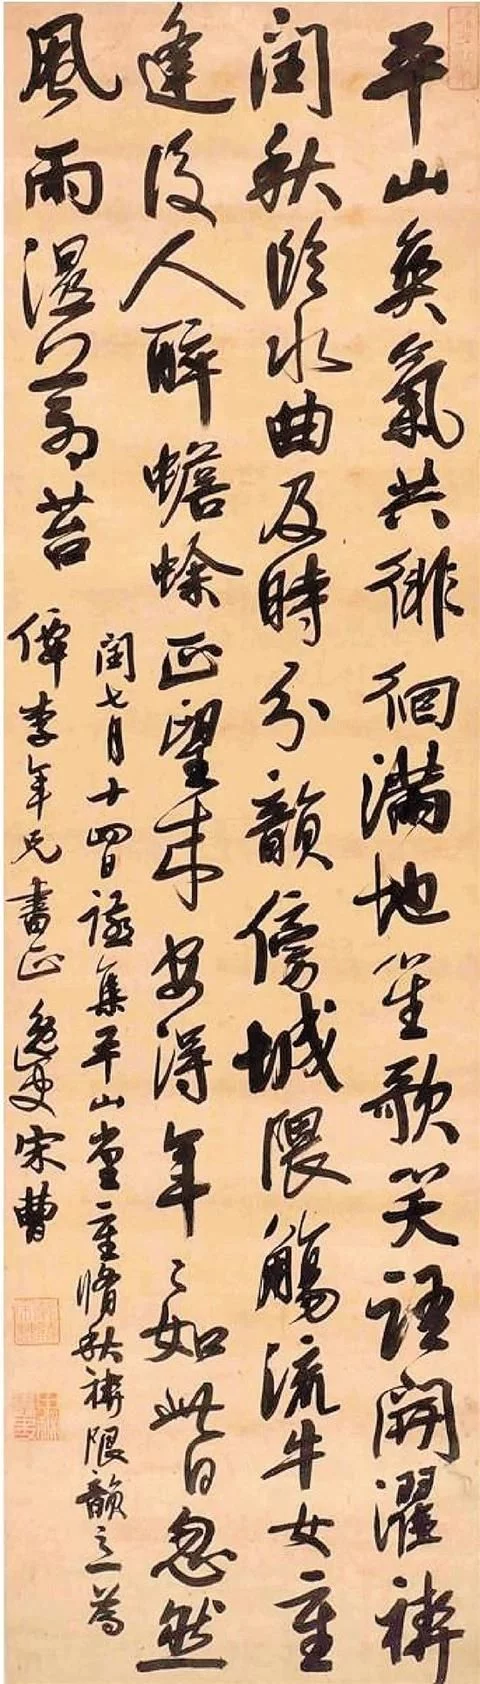 平山爽氣共徘徊滿地笙歌笑語開濯禊
閏秋臨水曲及時分韻傍城隈觴流牛女重
逢後人醉蟾蜍正望來安得年々如此日忽然
風雨濕蒼苔
閏七月十四日讌集平山堂重脩秋禊限韻之一為
僊李年兄書正 逸史宋曹